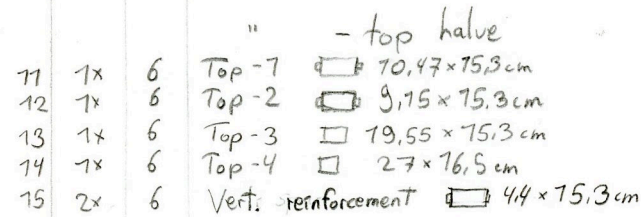 " - top halve
11 1x 6 Top-1 10,47 × 15,3 cm
12 1x 6 Top-2 9,15 × 15,3 cm
13 1x 6 Top-3 19,55 × 15,3 cm
14 1x 6 Top-4 27 × 16,5 cm
15 2x 6 Vert. reinforcement 4,4 × 15,3 cm